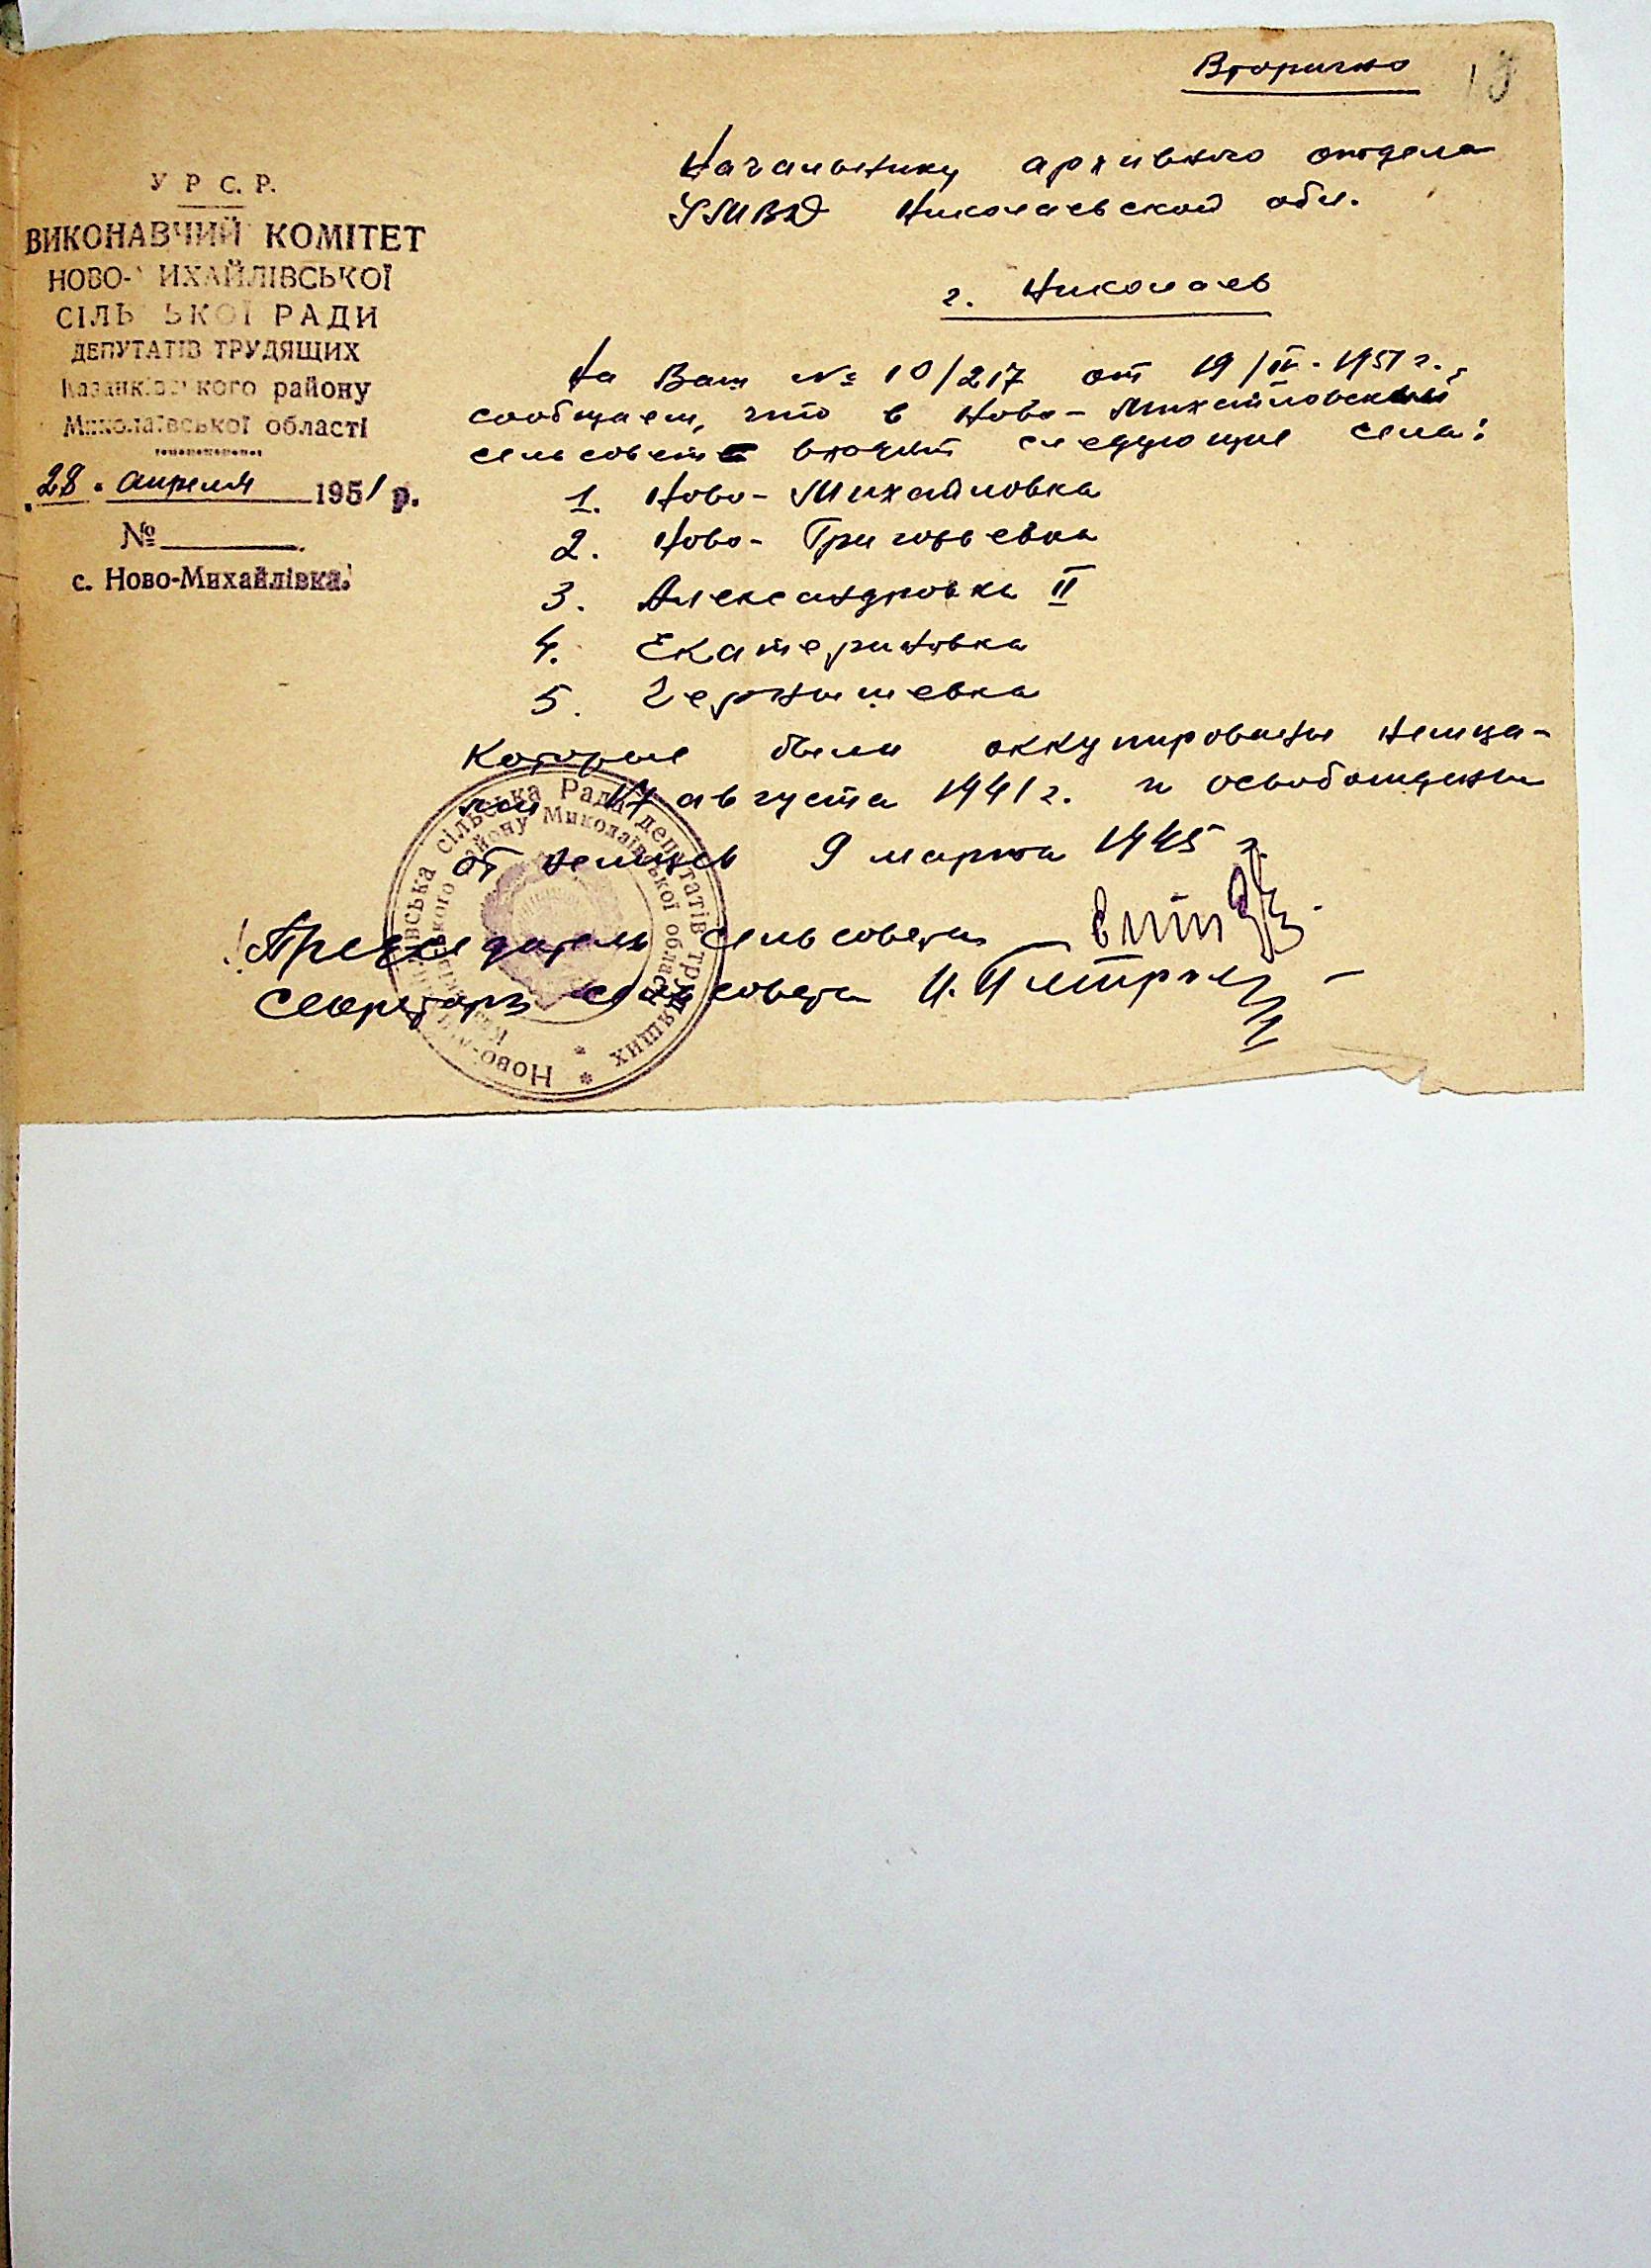 Вторично
У Р С. Р.
ВИКОНАВЧИЙ КОМІТЕТ
НОВО-МИХАЙЛІВСЬКОЇ
СІЛЬСЬКОЇ РАДИ
ДЕПУТАТІВ ТРУДЯЩИХ
Казанківського району
Миколаївської області
28. апреля 1951 р.
№
с. Ново-Михайлівка.
Начальнику архивного отдела
УМВД Николаевской обл.
г. Николаев
На Ваш № 10/217 от 19/IV-1951 г.,
сообщаем, что в Ново-Михайловский
сельсовет входит следующие села:
1. Ново-Михайловка
2. Ново-Григорьевка
3. Александровка II
4. Екатериновка
5. Чернышевка
Которые были оккупированы немца-
ми 17 августа 1941 г. и освобождены
от немцев 9 марта 1945 г.
Председатель сельсовета
Секретарь сельсовета
Ново-Михайлівська сільська Рада депутатів трудящих
Казанківського району Миколаївської області